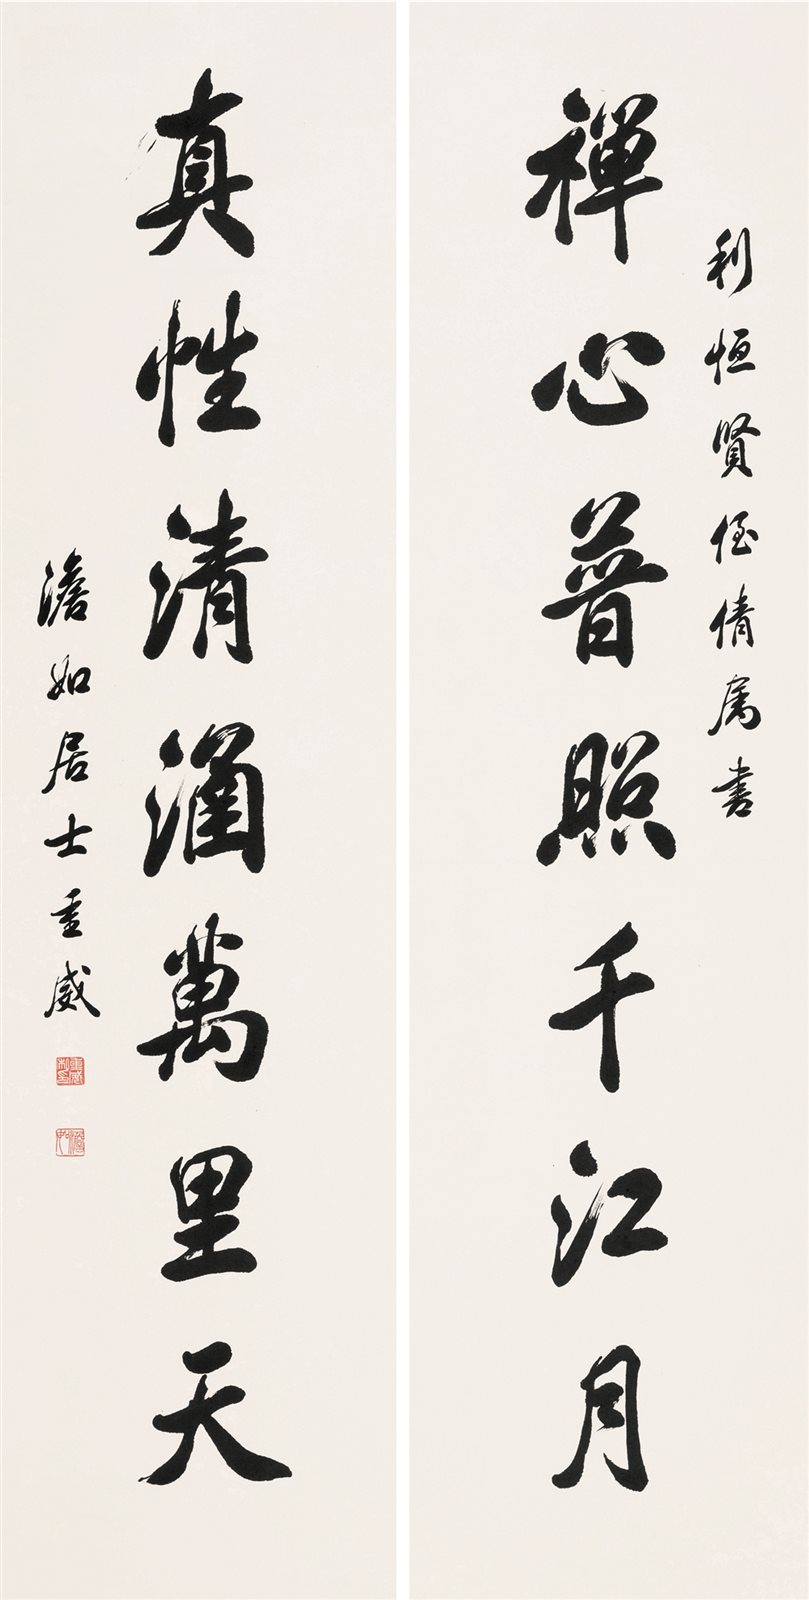 利恒賢侄倩属書
禪心普照千江月
真性清涵萬里天
澹如居士重威
澹如